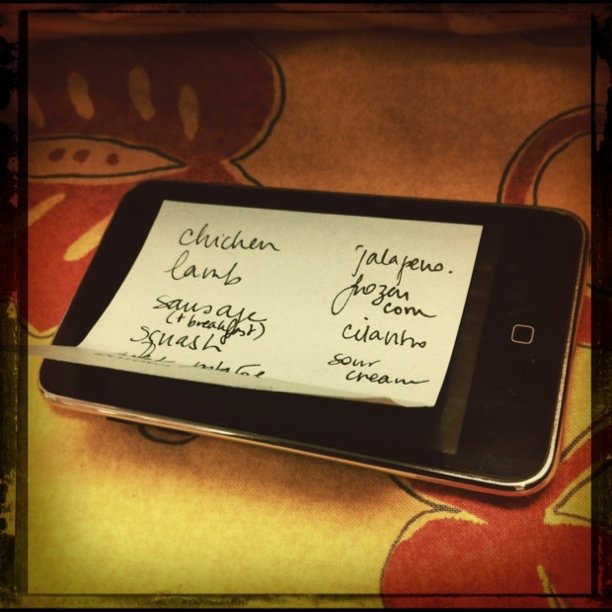 chicken
lamb
sausage
(+ breakfast)
squash
jalapeno.
frozen
corn
cilantro
sour
cream